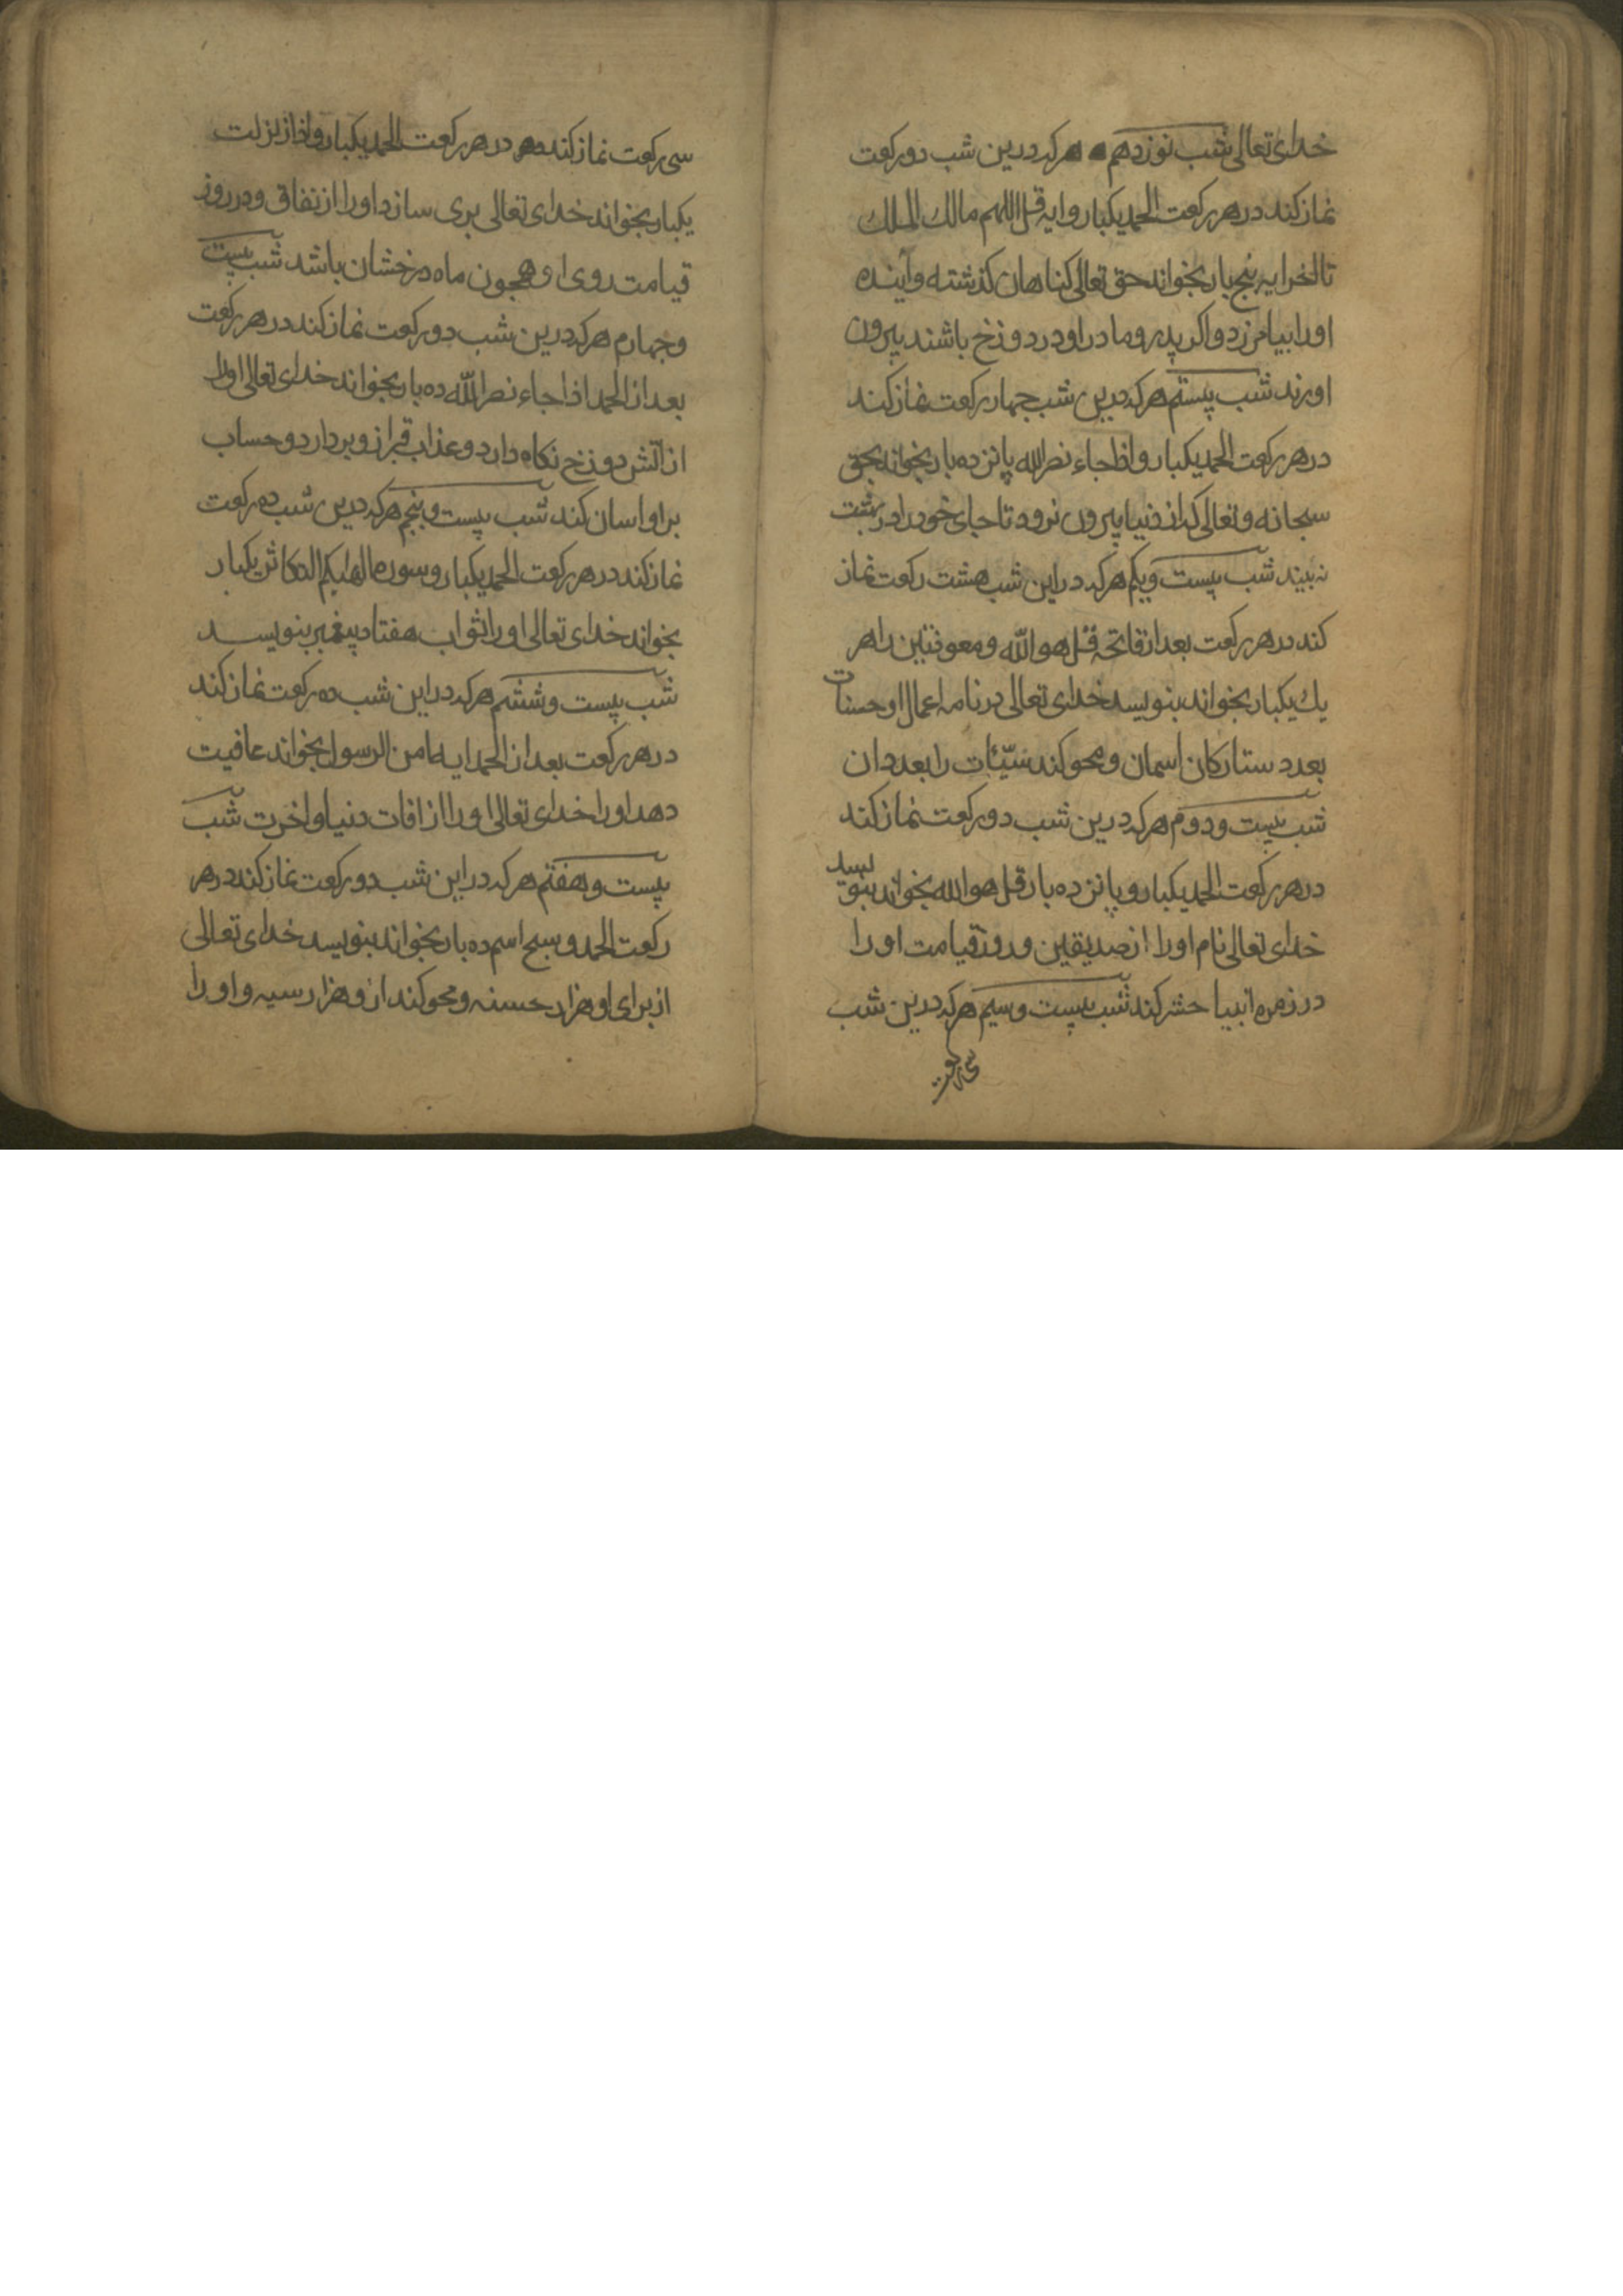 خدای تعالی شب نوزدهم هرکه درین شب دو رکعت
نماز کند در هر رکعت الحمد یکبار و ایه قل اللهم مالك الملك
تا اخر ایه پنج بار بخواند حق تعالی کناهان کذشته و آینده
اورا بیامرزد و اکر پدر و مادر او در دوزخ باشند بیرون
اورند شب بیستم هرکه درین شب جهار رکعت نماز کند
در هر رکعت الحمد یکبار و اذا جاء نصر الله پانزده بار بخواند بحق
سبحانه و تعالی که از دنیا بیرون نرود تا جای خود را در بهشت
نه بیند شب بیست و یکم هرکه در این شب هشت رکعت نماز
کند در هر رکعت بعد از فاتحه قل هو الله و معوذتین را هر
یك یکبار بخواند بنویسد خدای تعالی در نامه اعمال او حسنات
بعدد ستارکان اسمان و محو کند سیّئات را بعدد ان
شب بیست و دوم هرکه درین شب دو رکعت نماز کند
در هر رکعت الحمد یکبار و پانزده بار قل هو الله بخواند بنویسد
خدای تعالی نام اورا از صدیقین و روز قیامت اورا
در زمره انبیا حشر کند شب بیست و سیم هرکه درین شب
سی رکعت
سی رکعت نماز کند در هر رکعت الحمد یکبار و اذا زلزلت
یکبار بخواند خدای تعالی بری سازد اورا از نفاق و در روز
قیامت روی او همجون ماه درخشان باشد شب بیست
و جهارم هرکه درین شب دو رکعت نماز کند در هر رکعت
بعد از الحمد اذا جاء نصر الله ده بار بخواند خدای تعالی اورا
از آتش دوزخ نکاه دارد و عذاب قبر ازو بردارد و حساب
بر او اسان کند شب بیست و پنجم هرکه درین شب ده رکعت
نماز کند در هر رکعت الحمد یکبار و سوره الهیکم التکاثر یکبار
بخواند خدای تعالی اورا ثواب هفتاد پیغمبر بنویسد
شب بیست و ششم هرکه در این شب ده رکعت نماز کند
در هر رکعت بعد از الحمد ایه امن الرسول بخواند عافیت
دهد اورا خدای تعالی اورا از افات دنیا و اخرت شب
بیست و هفتم هرکه در این شب دو رکعت نماز کند در هر
رکعت الحمد و سبح اسم ده بار بخواند بنویسد خدای تعالی
از برای او هزار حسنه و محو کند ازو هزار سیه و اورا